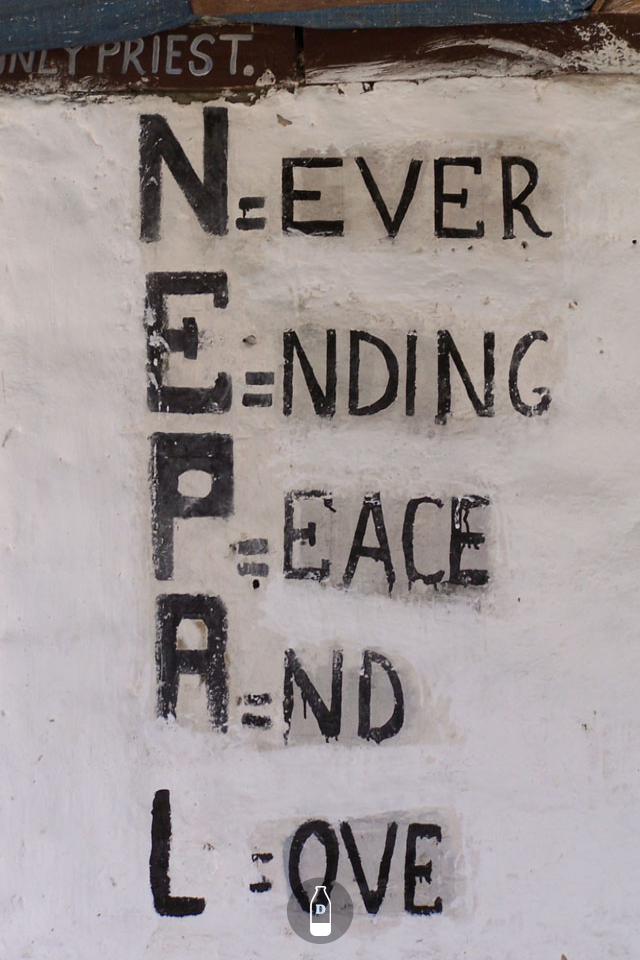 ONLY PRIEST.
N=EVER
E=NDING
P=EACE
A=ND
L=OVE
D